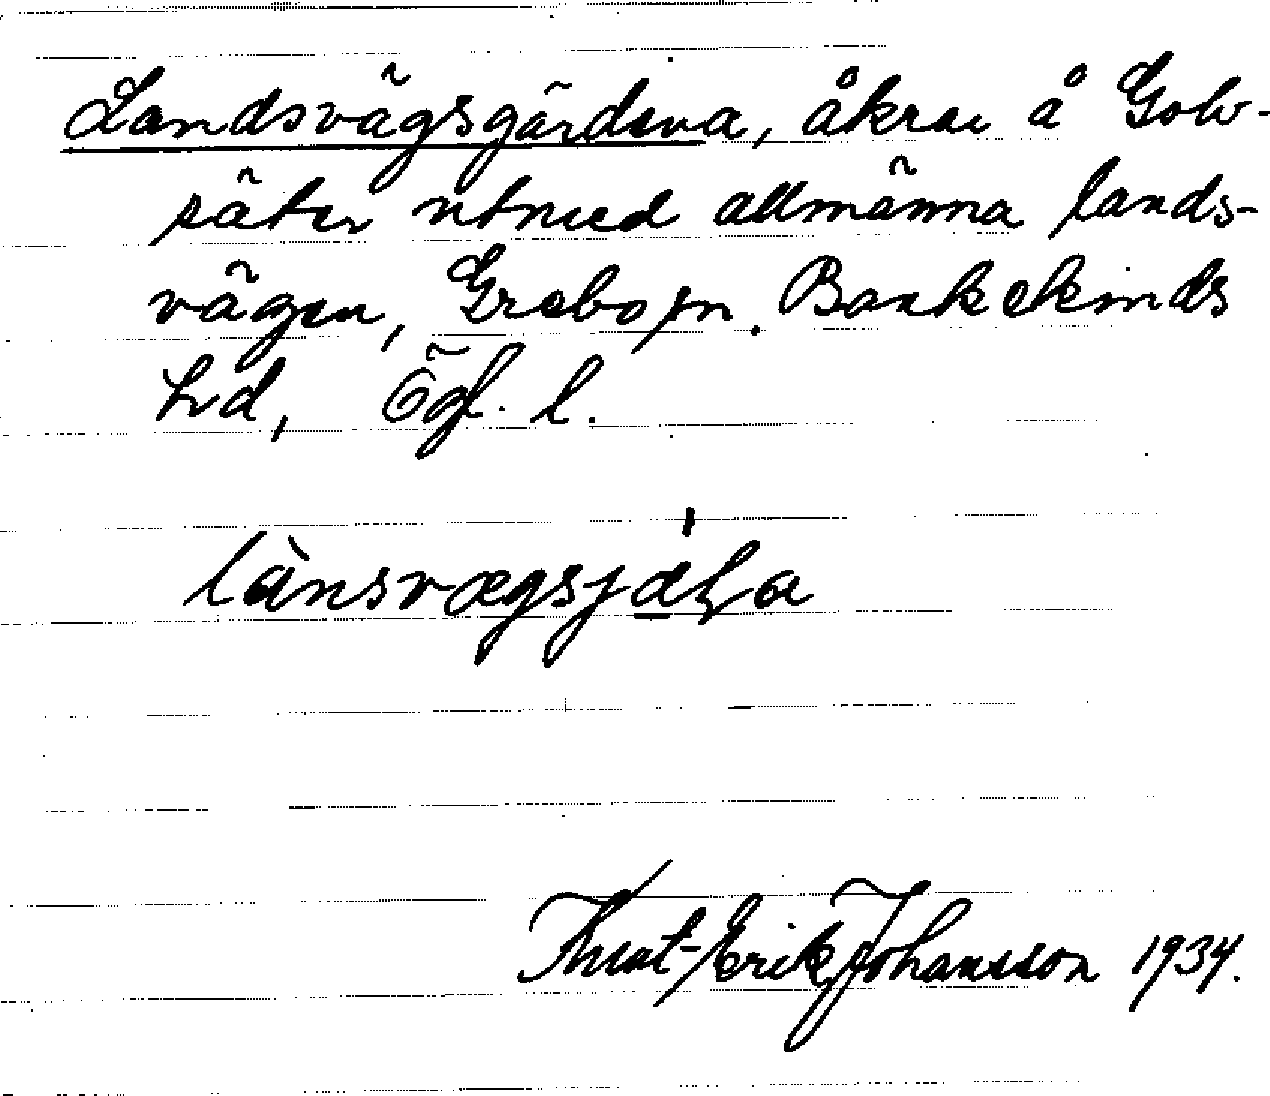 Landsvägsgärdena, åkrar å Golv-
säter utmed allmänna lands-
vägen, Grebo sn. Bankekinds
hd, Ögl. l.
Knut-Erik Johansson 1934.